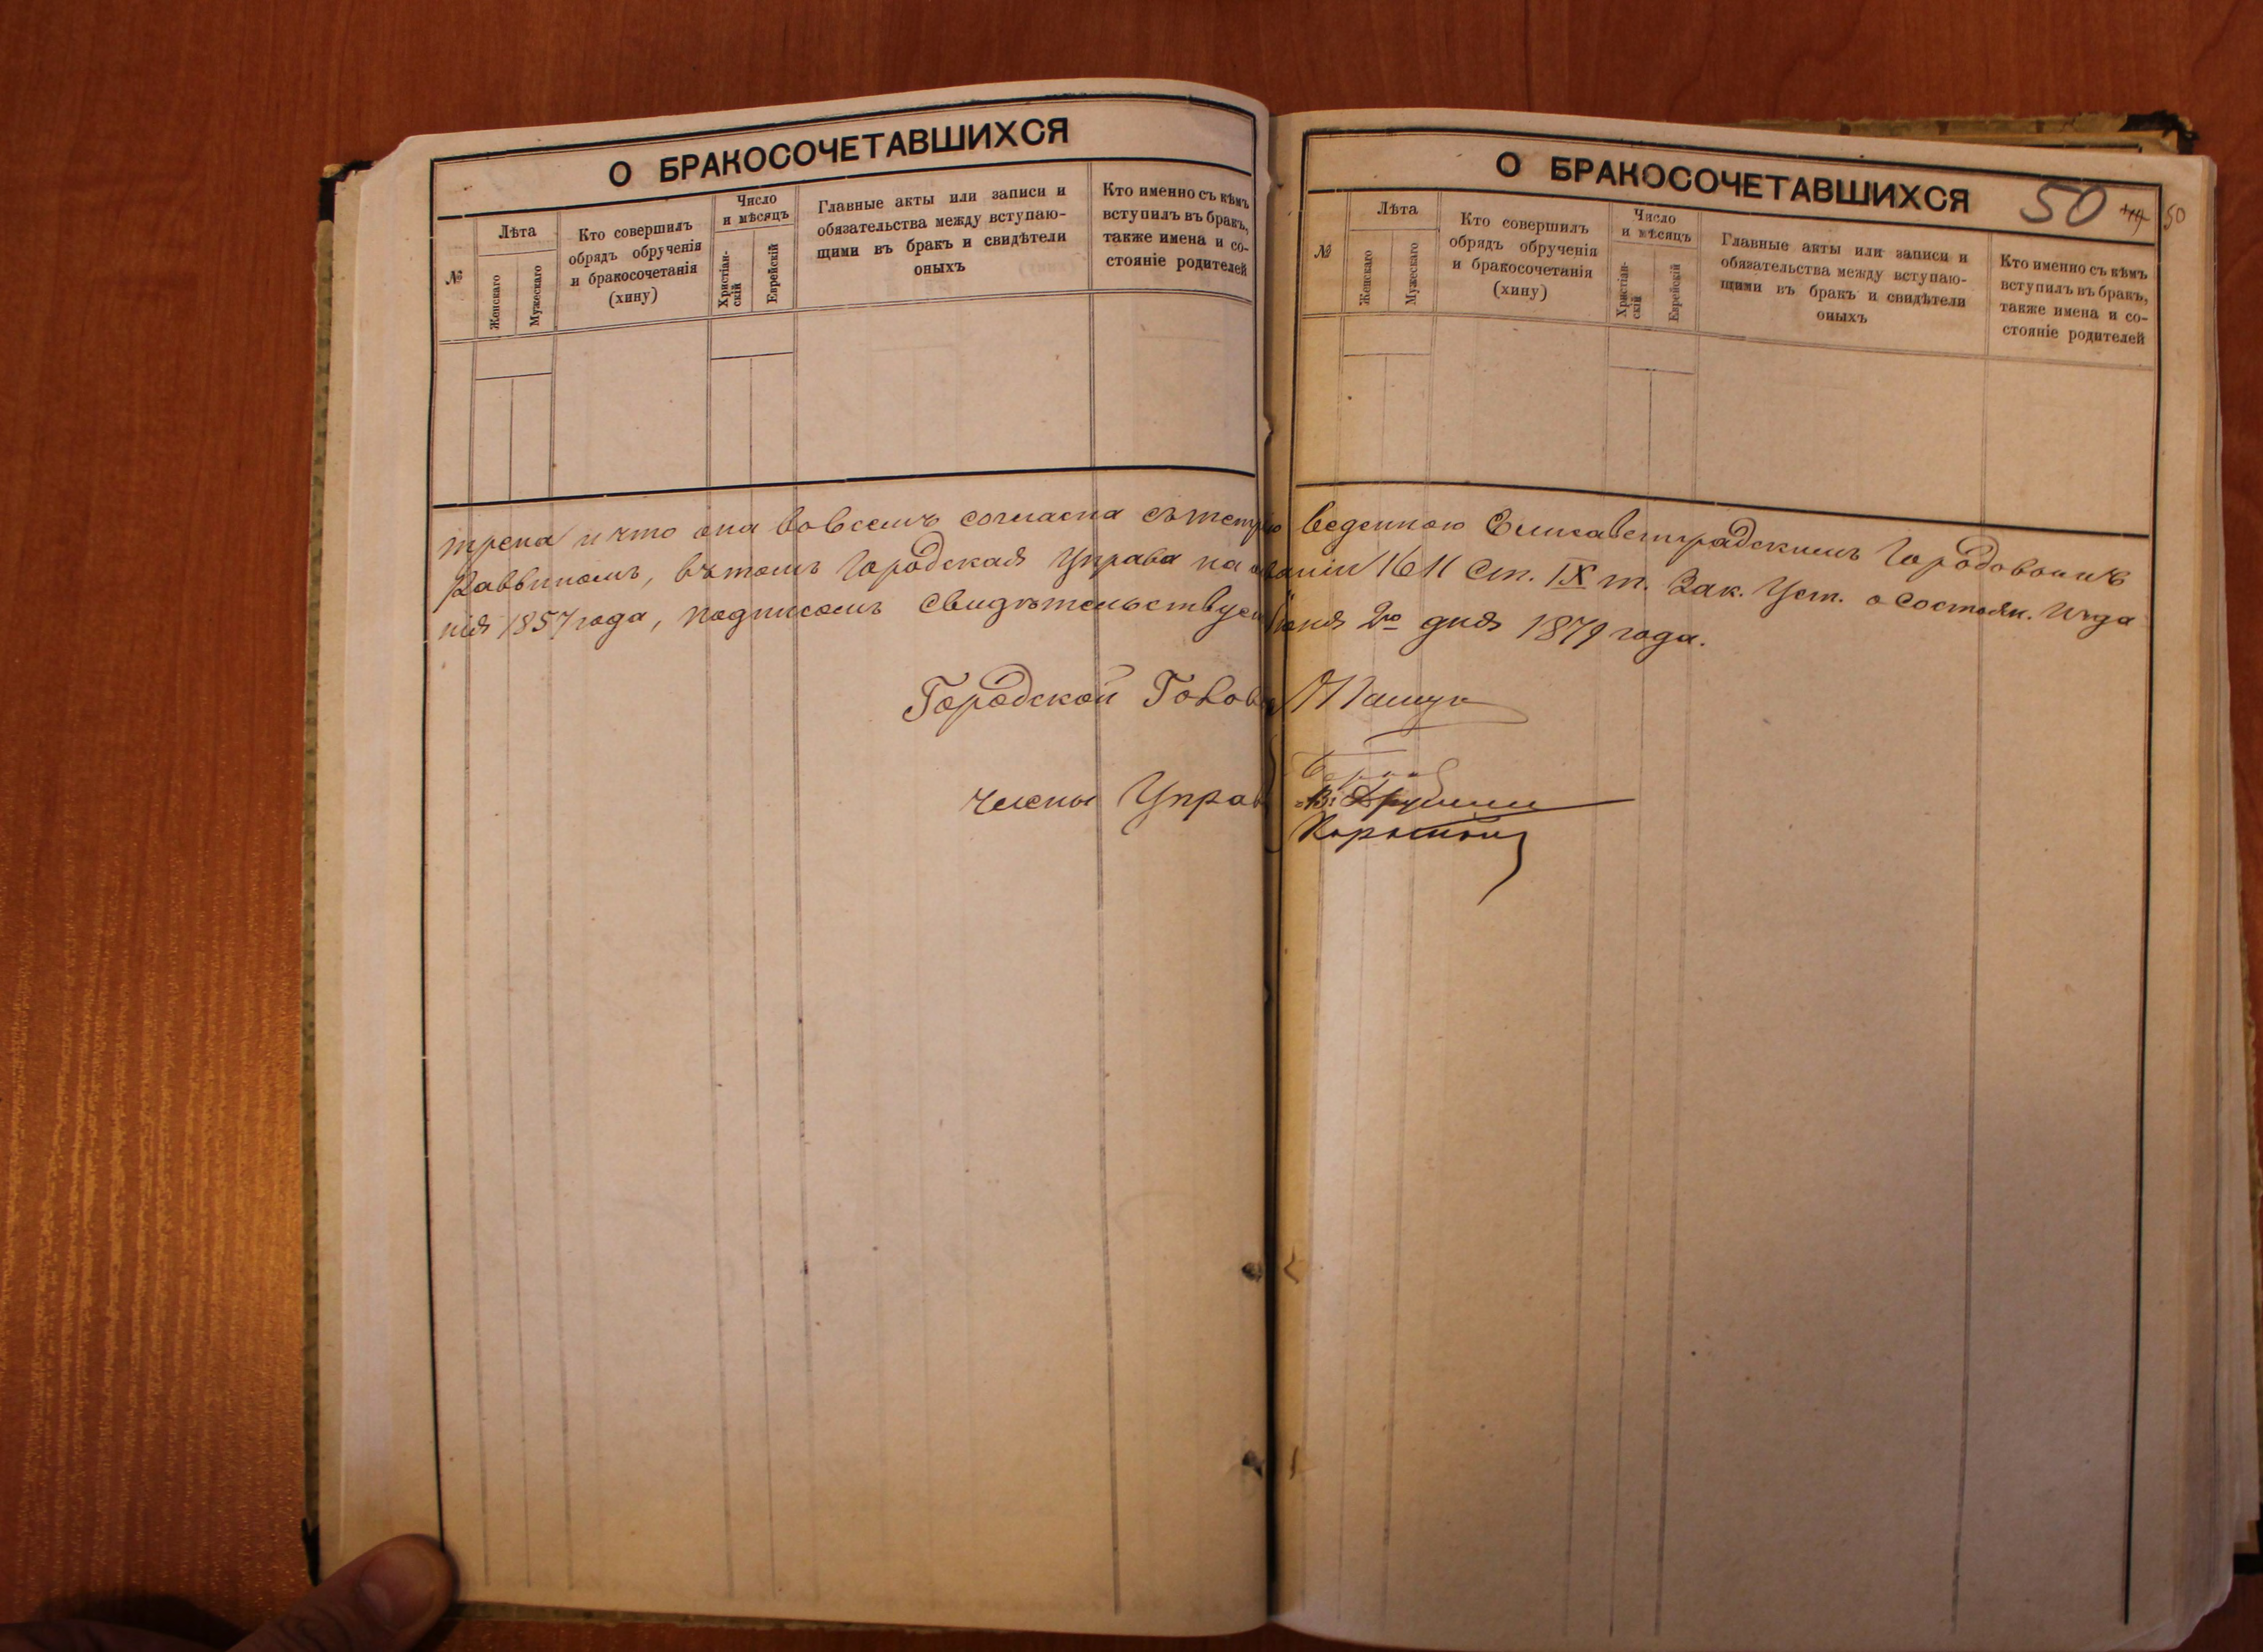 О БРАКОСОЧЕТАВШИХСЯ
№
Лѣта
Женскаго
Мужескаго
Кто совершилъ
обрядъ обрученія
и бракосочетанія
(хину)
Число
и мѣсяцъ
Христіан-
скій
Еврейскій
Главные акты или записи и
обязательства между вступаю-
щими въ бракъ и свидѣтели
оныхъ
Кто именно съ кѣмъ
вступилъ въ бракъ,
также имена и со-
стояніе родителей
О БРАКОСОЧЕТАВШИХСЯ
50
50
№
Лѣта
Женскаго
Мужескаго
Кто совершилъ
обрядъ обрученія
и бракосочетанія
(хину)
Число
и мѣсяцъ
Христіан-
скій
Еврейскій
Главные акты или записи и
обязательства между вступаю-
щими въ бракъ и свидѣтели
оныхъ
Кто именно съ кѣмъ
вступилъ въ бракъ,
также имена и со-
стояніе родителей
трена и что она вовсемъ согласна съ веденною Елисаветградскимъ Городовымъ
Раввиномъ, въ томъ Городская Управа на 1611 ст. IX т. Зак. Уст. о состоян. изда
нія 1857 года, подписомъ свидѣтельствуетъ Іюня 2го дня 1879 года.
Городской Голова Пашук
Члены Управ